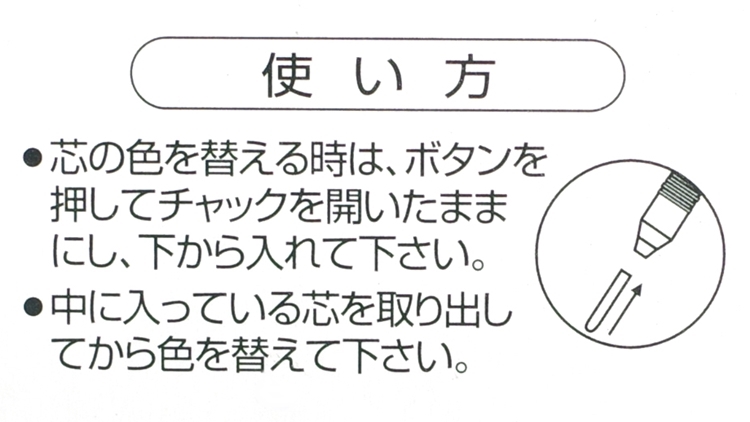 使い方
●芯の色を替える時は、ボタンを
押してチャックを開いたまま
にし、下から入れて下さい。
●中に入っている芯を取り出し
てから色を替えて下さい。